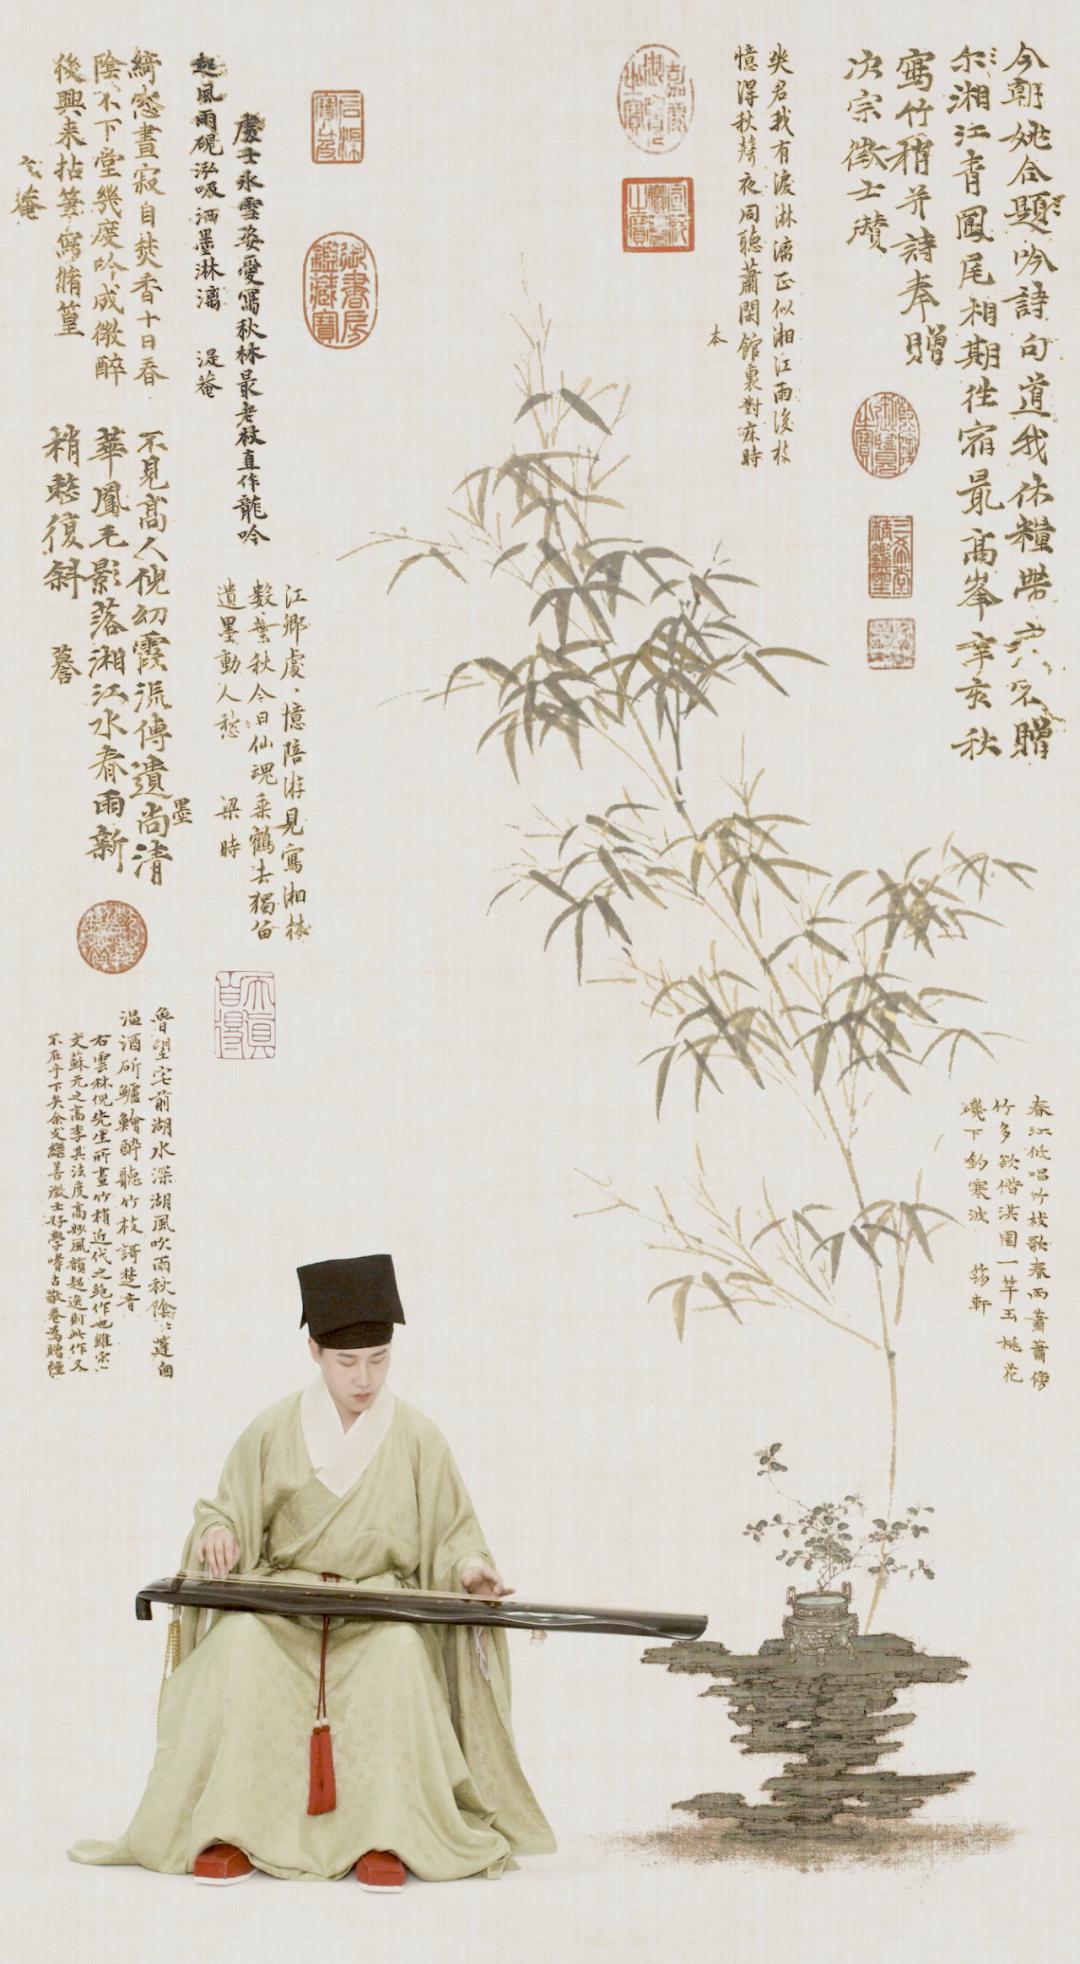 今朝姚合題吟詩句道我休糧帶
贈
尔湘江青鳳尾相期往宿最高峯辛亥秋
寫竹稍并詩奉贈
次宗徵士瓚
爽君我有淚淋漓正似湘江雨後枝
憶得秋聲夜同聽蕭閑館裏對床時
本
春江低唱竹枝歌春雨蕭蕭傍
竹多欲借淇園一竿玉桃花
磯下釣寒波
慶士永雪姿愛寫秋林最老枝直作龍吟
起風雨硯泓吸酒墨淋漓 湜菴
江鄉處憶陪游見寫湘林
數葉秋今日仙魂乘鶴去獨留
遺墨動人愁 梁時
綺窓晝寂自焚香十日春
陰不下堂幾度吟成微醉
後興來拈筆寫脩篁
菴
不見高人倪幻霞流傳遺尚清
墨
華鳳毛影落湘江水春雨新
稍整復斜 謩
魯望宅前湖水深湖風吹雨秋陰
溫酒斫鱸鱠醉聽竹枝謌楚音
右雲林倪先生所畫竹稍近代之絕作也雖宋
文蘇元之高李其法度高妙風韻超逸則此作又
不在乎下矣余友繼善徵士好學嗜古敬卷為贈
石渠
寶笈
御書房
鑑藏寶
嘉慶
御覽
之寶
乾隆
御覽
之寶
三希堂
精鑑璽
天真
自得